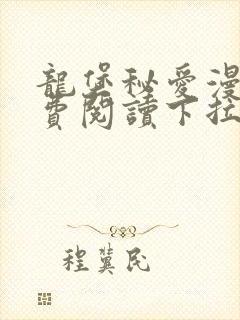 龍堡秘愛漫
費閱讀下拉
程冀民